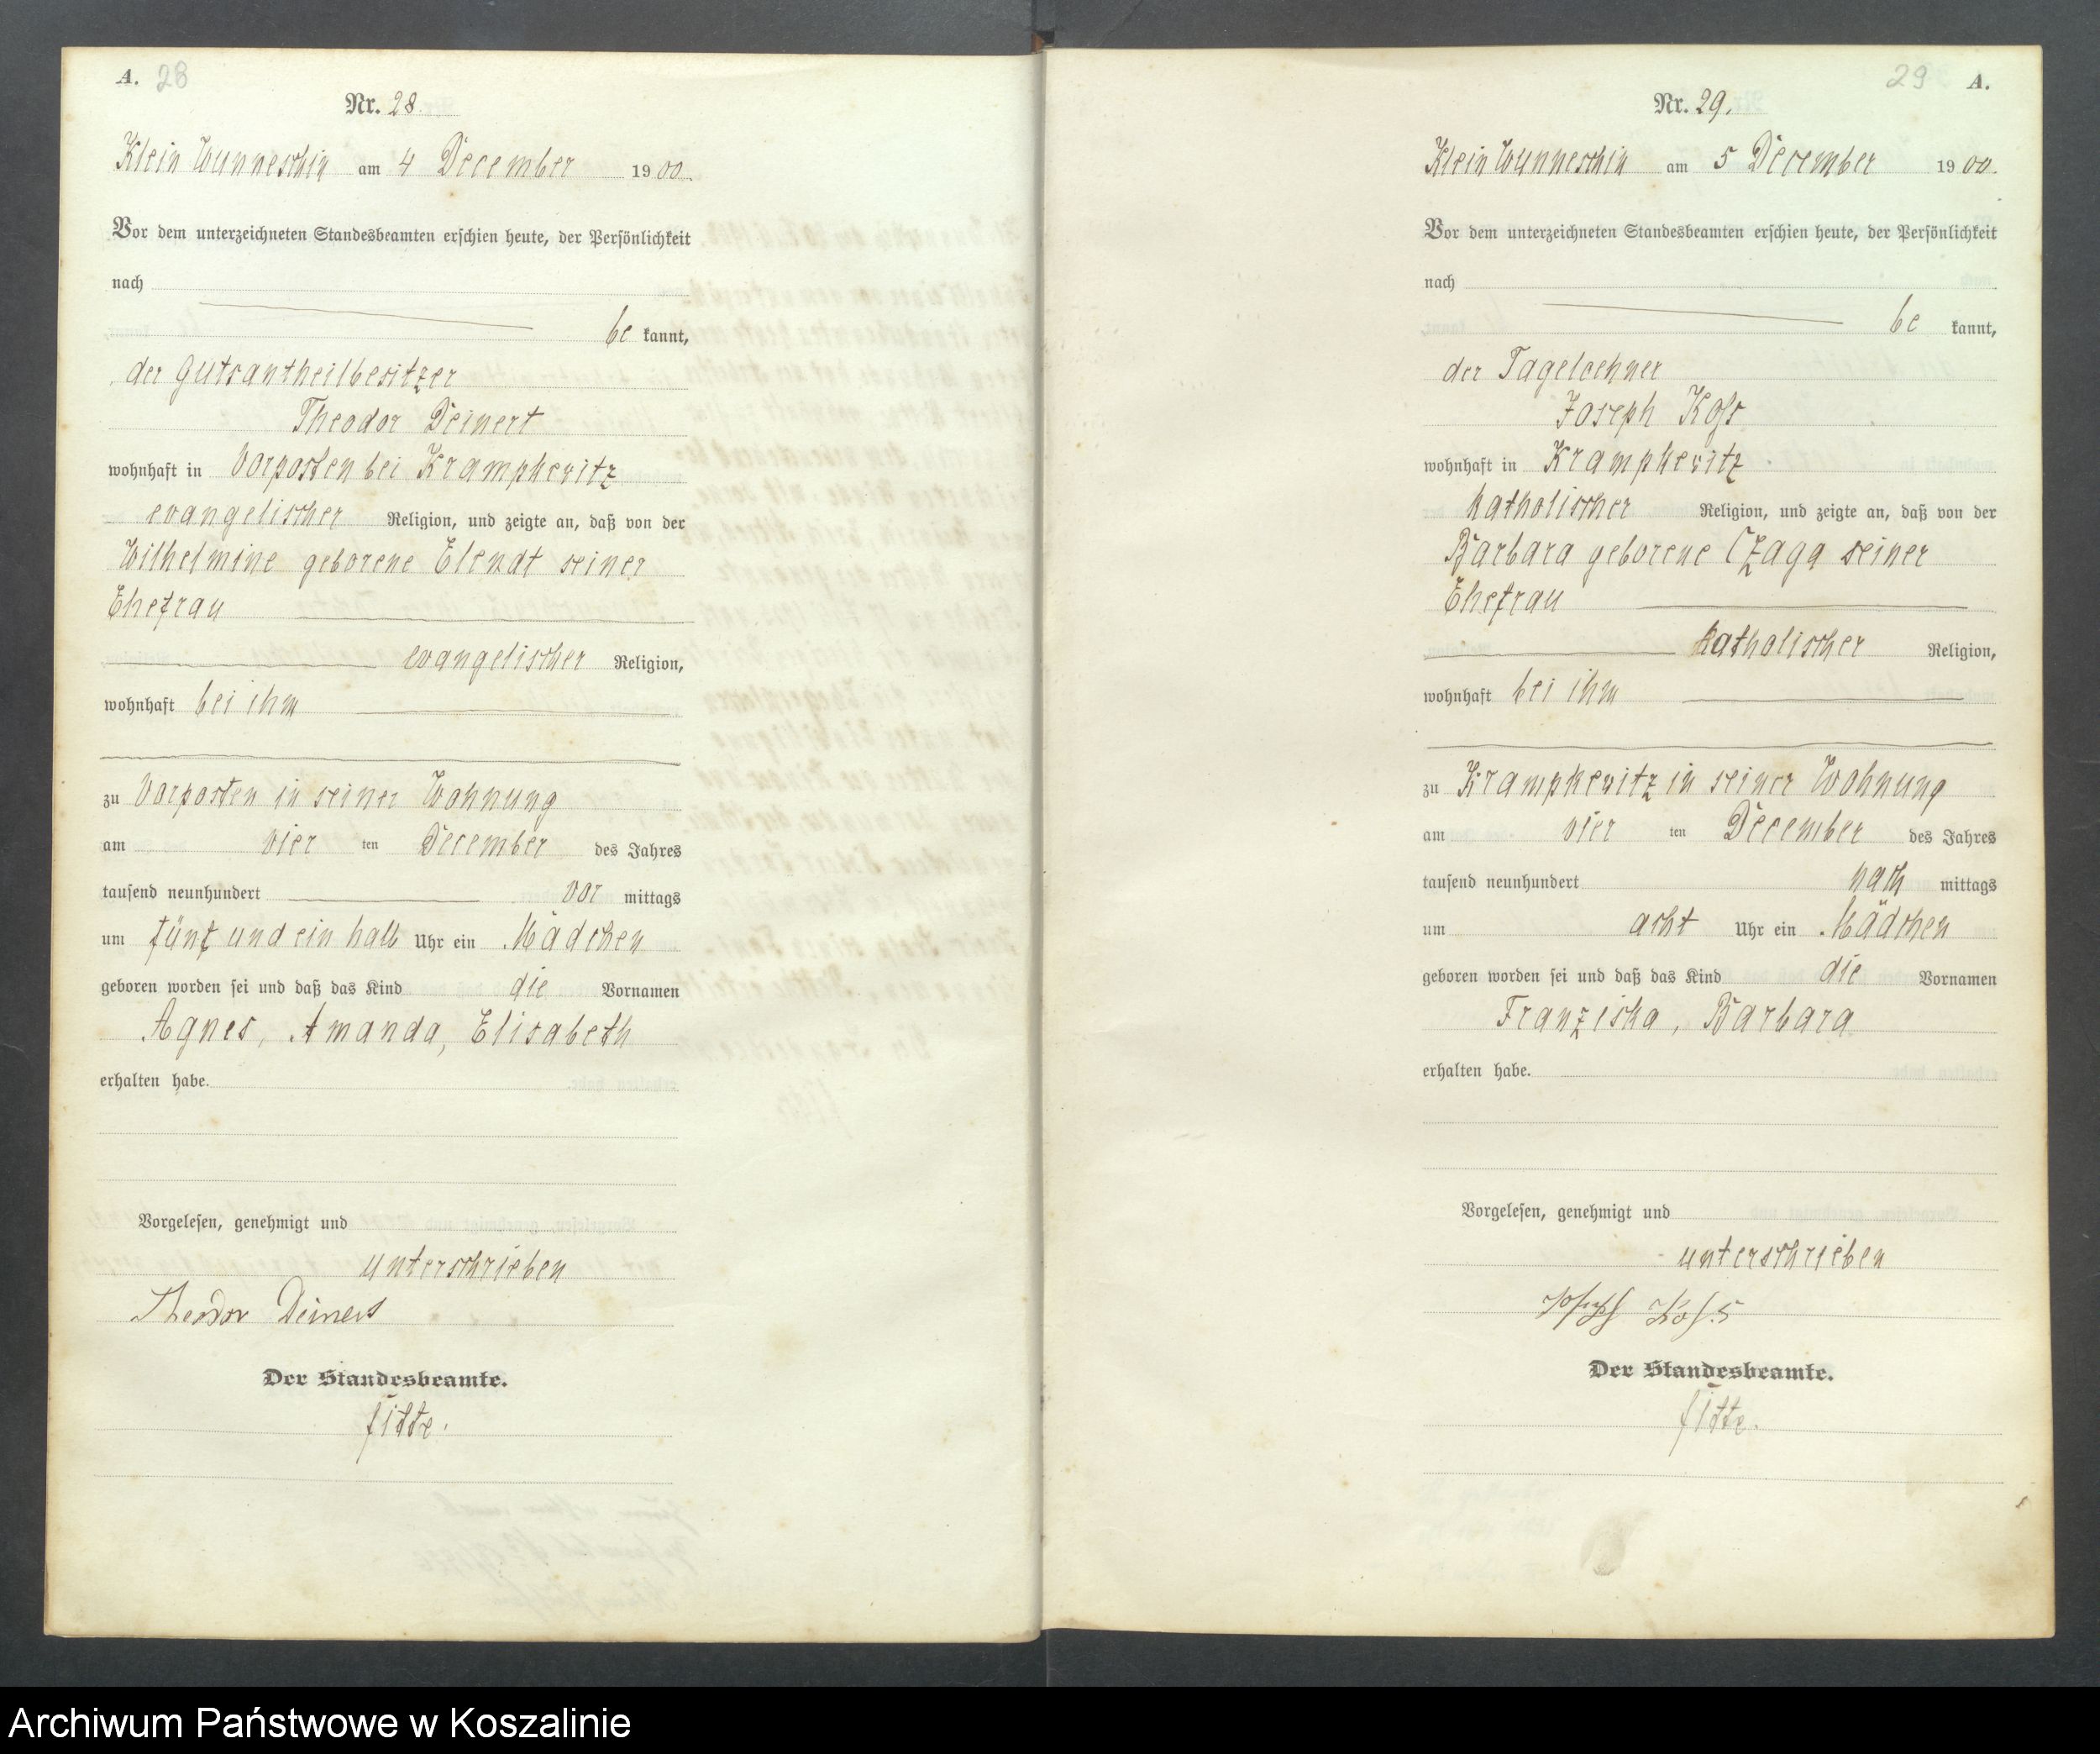 A. 28
Nr. 28
Klein Wunneschin am 4 December 1900.
Vor dem unterzeichneten Standesbeamten erschien heute, der Persönlichkeit
nach
be kannt,
der Gutsantheilbesitzer
Theodor Deinert
wohnhaft in Vorposten bei Krampkewitz
evangelischer Religion, und zeigte an, daß von der
Wilhelmine geborene Elendt seiner
Ehefrau
evangelischer Religion,
wohnhaft bei ihm
zu Vorposten in seiner Wohnung
am vier ten December des Jahres
tausend neunhundert vor mittags
um fünf und ein halb Uhr ein Mädchen
geboren worden sei und daß das Kind die Vornamen
Agnes, Amanda, Elisabeth
erhalten habe.
Vorgelesen, genehmigt und
unterschrieben
Theodor Deinert
Der Standesbeamte.
29 A.
Nr. 29.
Klein Wunneschin am 5 December 1900.
Vor dem unterzeichneten Standesbeamten erschien heute, der Persönlichkeit
nach
be kannt,
der Tageloehner
Joseph Koſs
wohnhaft in Krampkewitz
katholischer Religion, und zeigte an, daß von der
Barbara geborene Czaga seiner
Ehefrau
katholischer Religion,
wohnhaft bei ihm
zu Krampkewitz in seiner Wohnung
am vier ten December des Jahres
tausend neunhundert nach mittags
um acht Uhr ein Mädchen
geboren worden sei und daß das Kind die Vornamen
Franziska, Barbara
erhalten habe.
Vorgelesen, genehmigt und
unterschrieben
Joseph Koſs
Der Standesbeamte.
Archiwum Państwowe w Koszalinie